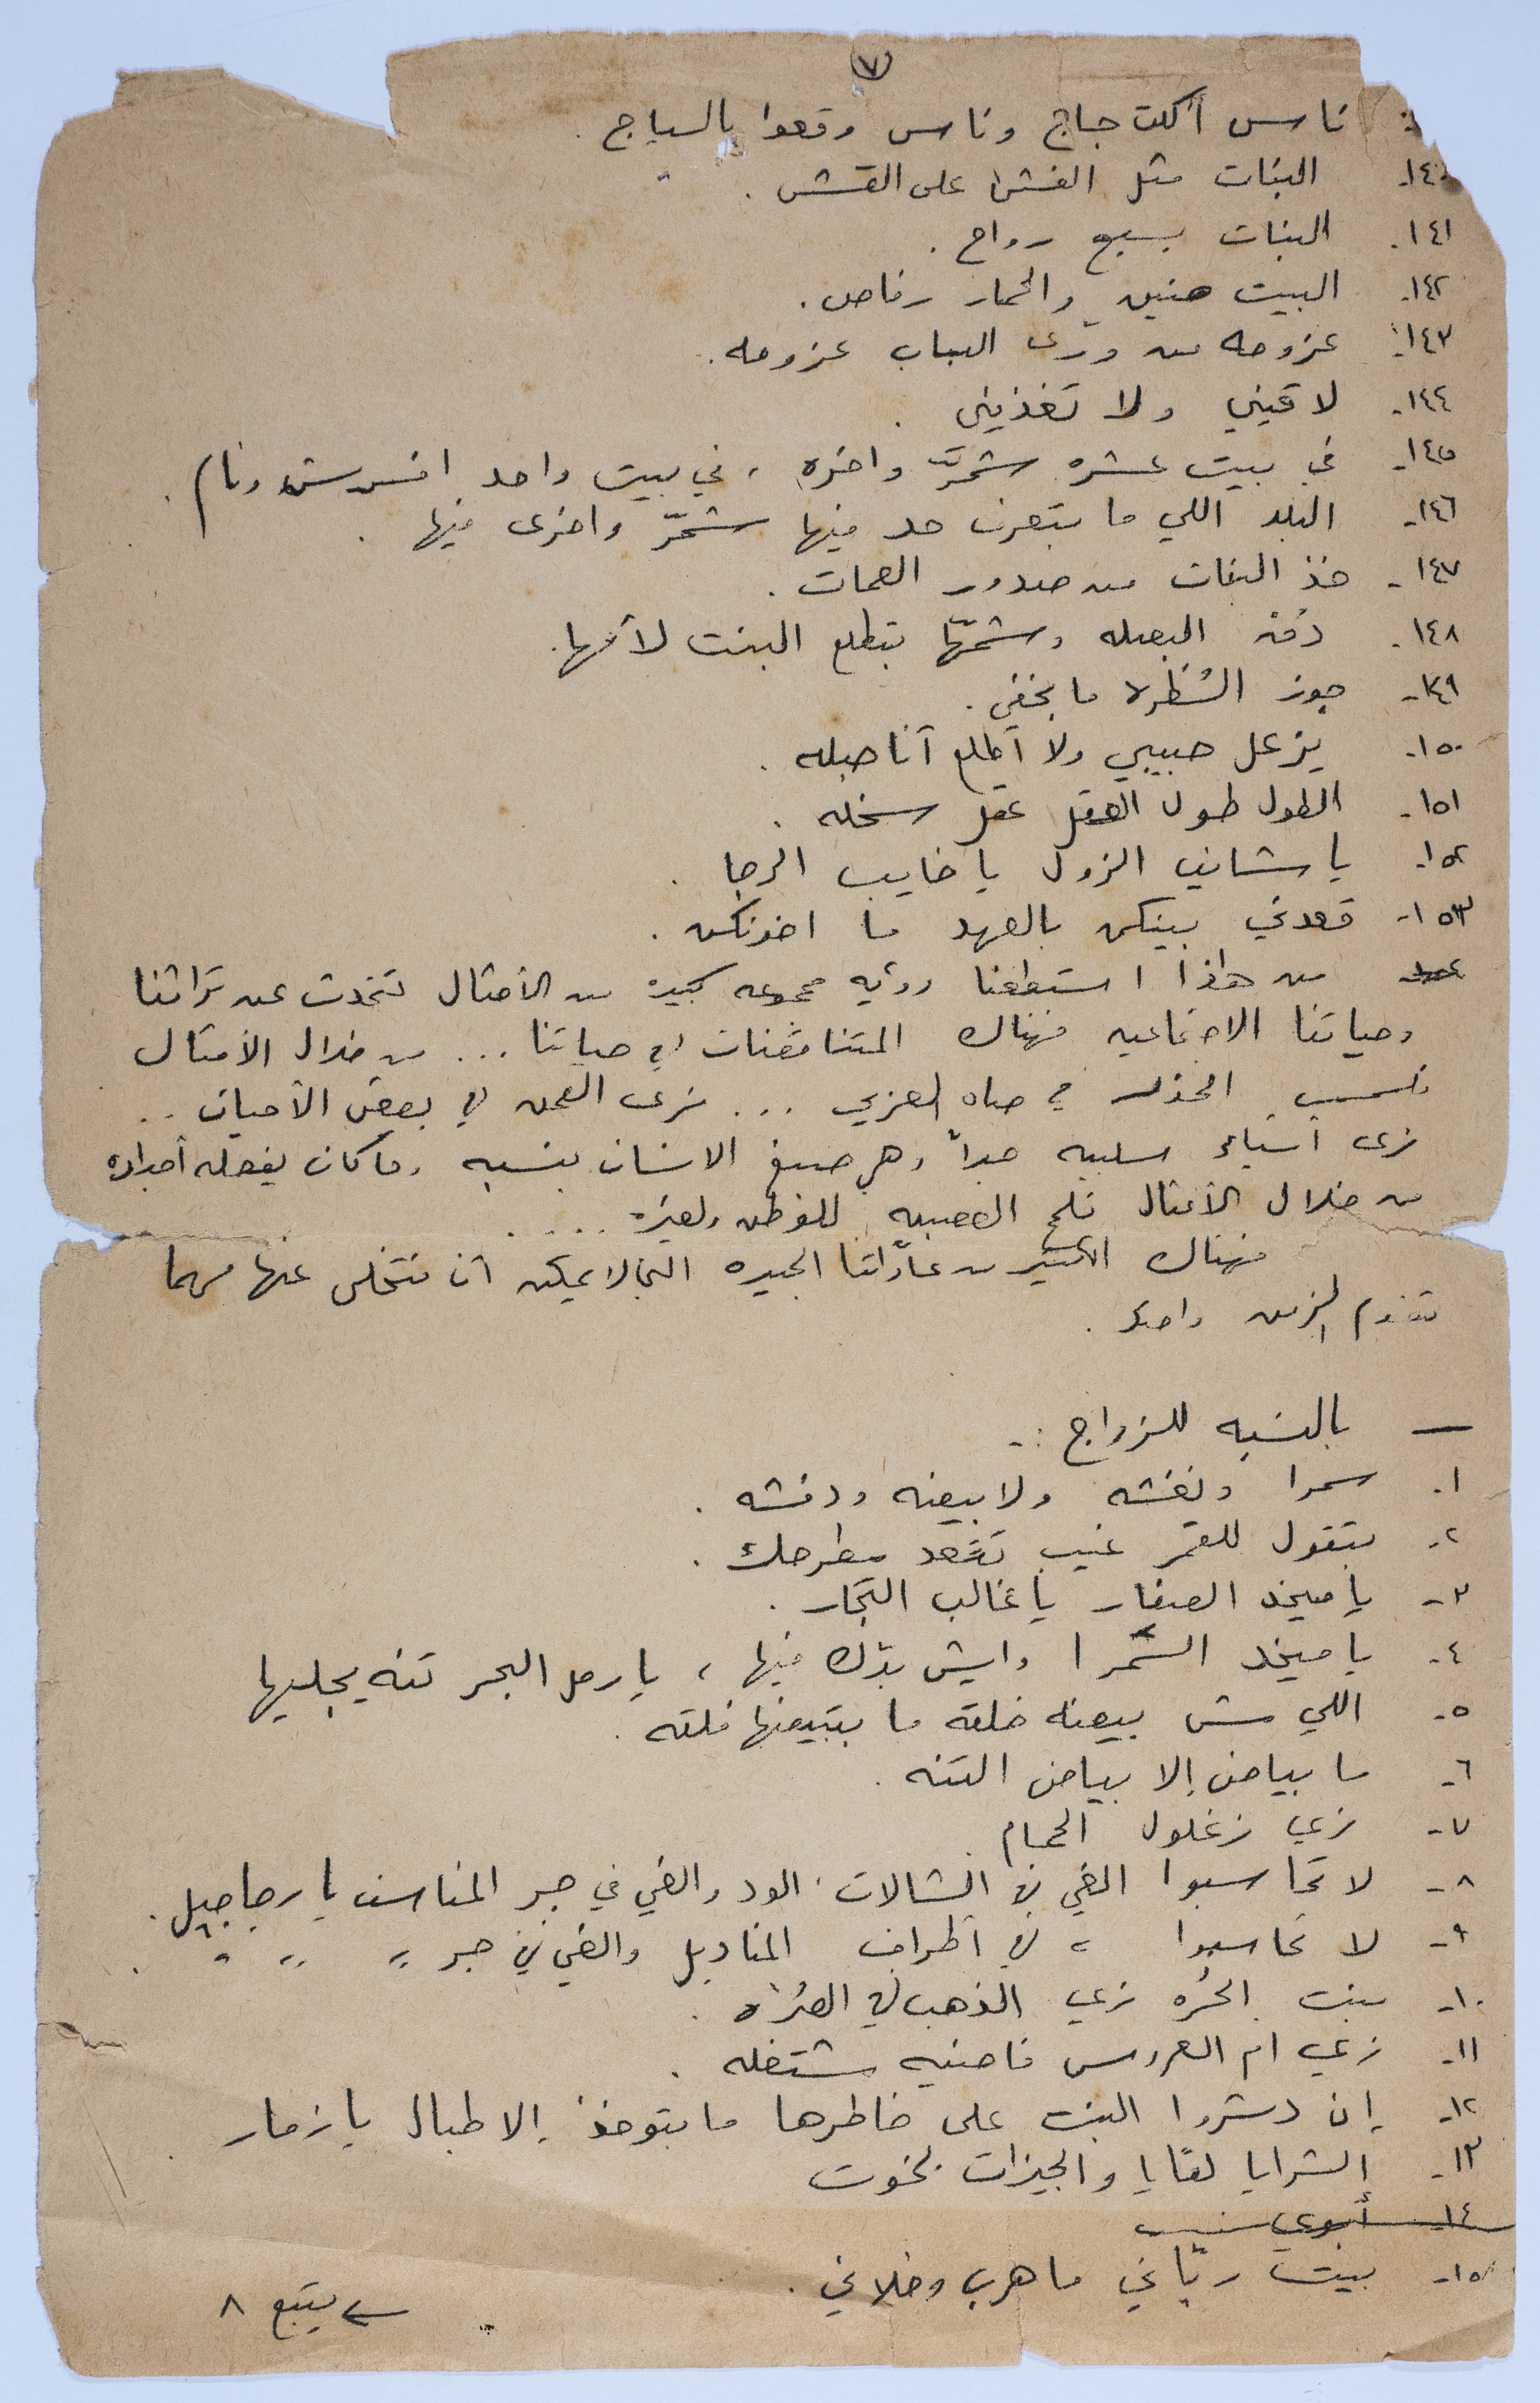 (٧)
ناس أكلت جاج وناس وقعوا بالسياج .
١٤٠- البنات مثل الفشل على القش .
١٤١. البنات بسبع رواح .
١٤٢- البيت هنيي والحمار رفاص .
١٤٣- عزومه من ورى الباب عزومه .
١٤٤- لاقيني ولا تغذيني .
١٤٥- في بيت عشره شمرّ واخره ، في بيت واحد افرش ونام .
١٤٦- البلد اللي ما بتعرف حد فيها شمرّ واخرى فيها .
١٤٧- خذ البنات من صدور العمات .
١٤٨. دُق البصله وشمّها بتطلع البنت لأمها .
١٤٩- جوز الشطره ما بخفي .
١٥٠- يزعل حبيبي ولا أطلع أنا هبله .
١٥١- الطول طول العقل عقل سخله .
١٥٢- يا شايف الزول يا خايب الرجا .
١٥٣- قعدتي بينكن بالعهد ما اخونكن .
من هاذا استطعنا رؤيه مجموعه كبيره من الأمثال تتحدث عن تراثنا
وحياتنا الاجتماعيه فهناك المتناقضات في حياتنا ... من خلال الأمثال
الحذر في حياه العربي ... نرى العمق في بعض الأحيان ..
نرى أشياء سلبيه جداً وهي الانسان بنسبه وما كان يفعله أجداده
من خلال الأمثال نلمح العصبيه للوطن ولغيره ....
فهناك الكثير من عاداتنا الجيده التي لا يمكن أن نتخلى عنها مهما
تقدم الزمن .
— بالنسبه للزواج :-
١. سمرا ونغشه ولا بيضه ودفشه .
٢- بتقول للقمر غيب تقعد مطرحك .
٣- يا ميخد الصغار يا غالب التجار .
٤- يا ميخد السَّمرا وايش بدّك فيها ، يا رمل البحر تنه يجليها
٥- اللي مش بيضه خلقه ما بتبيضها فلقه .
٦- ما بياض إلا بياض التنه .
٧- زي زغلول الحمام
٨- لا تحاسبوا الفي في الشالات الود والفي في جبر المناسب يا رجاجيل .
٩- لا تحاسبوا ، في أطراف المناديل والفي في جبر " " " .
١٠- بنت الحُره زي الذهب في الصُرَّه .
١١- زي ام العروس فاضيه مشتغله .
١٢- إن دشروا البنت على خاطرها ما بتوخذ إلا طبال يا زمار .
١٣- الشرايا لقايا والجيزات بخوت
١٤- أبوي
١٥- بيت ربّاني ما هرب وخلاني .
يتبع ٨